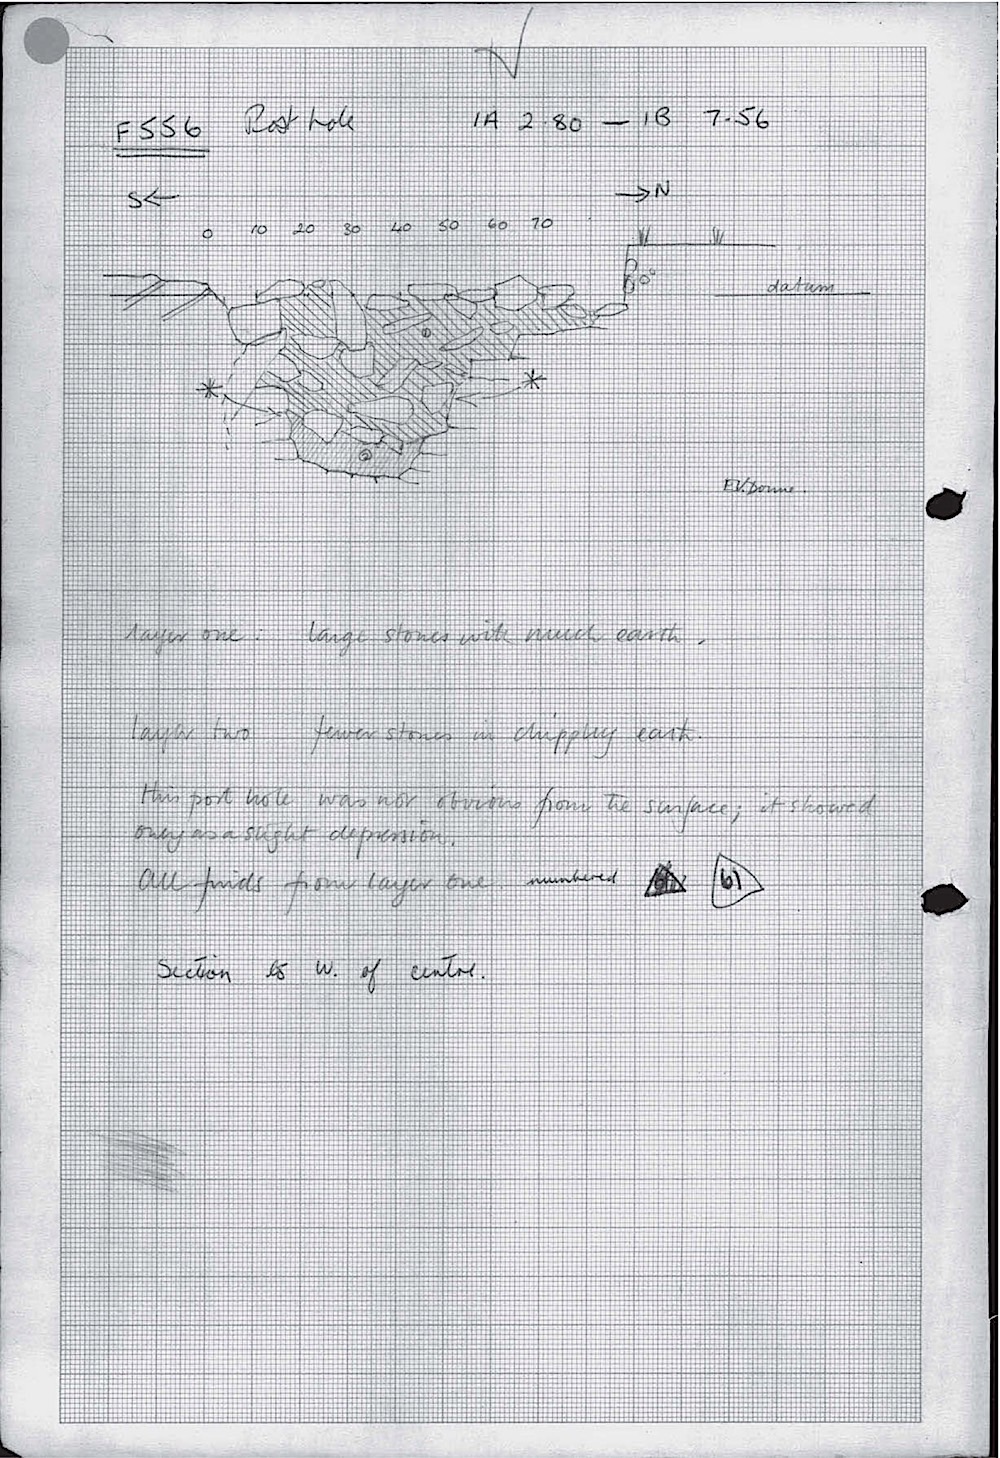 F556 Post hole 1A 2.80 — 1B 7.56
S← →N
0 10 20 30 40 50 60 70
datum
1
* *
2
layer one: large stones with much earth.
layer two fewer stones in chippley earth.
This post hole was not obvious from the surface; it showed
only as a slight depression.
All finds from layer one. numbered 61
Section to W. of centre.